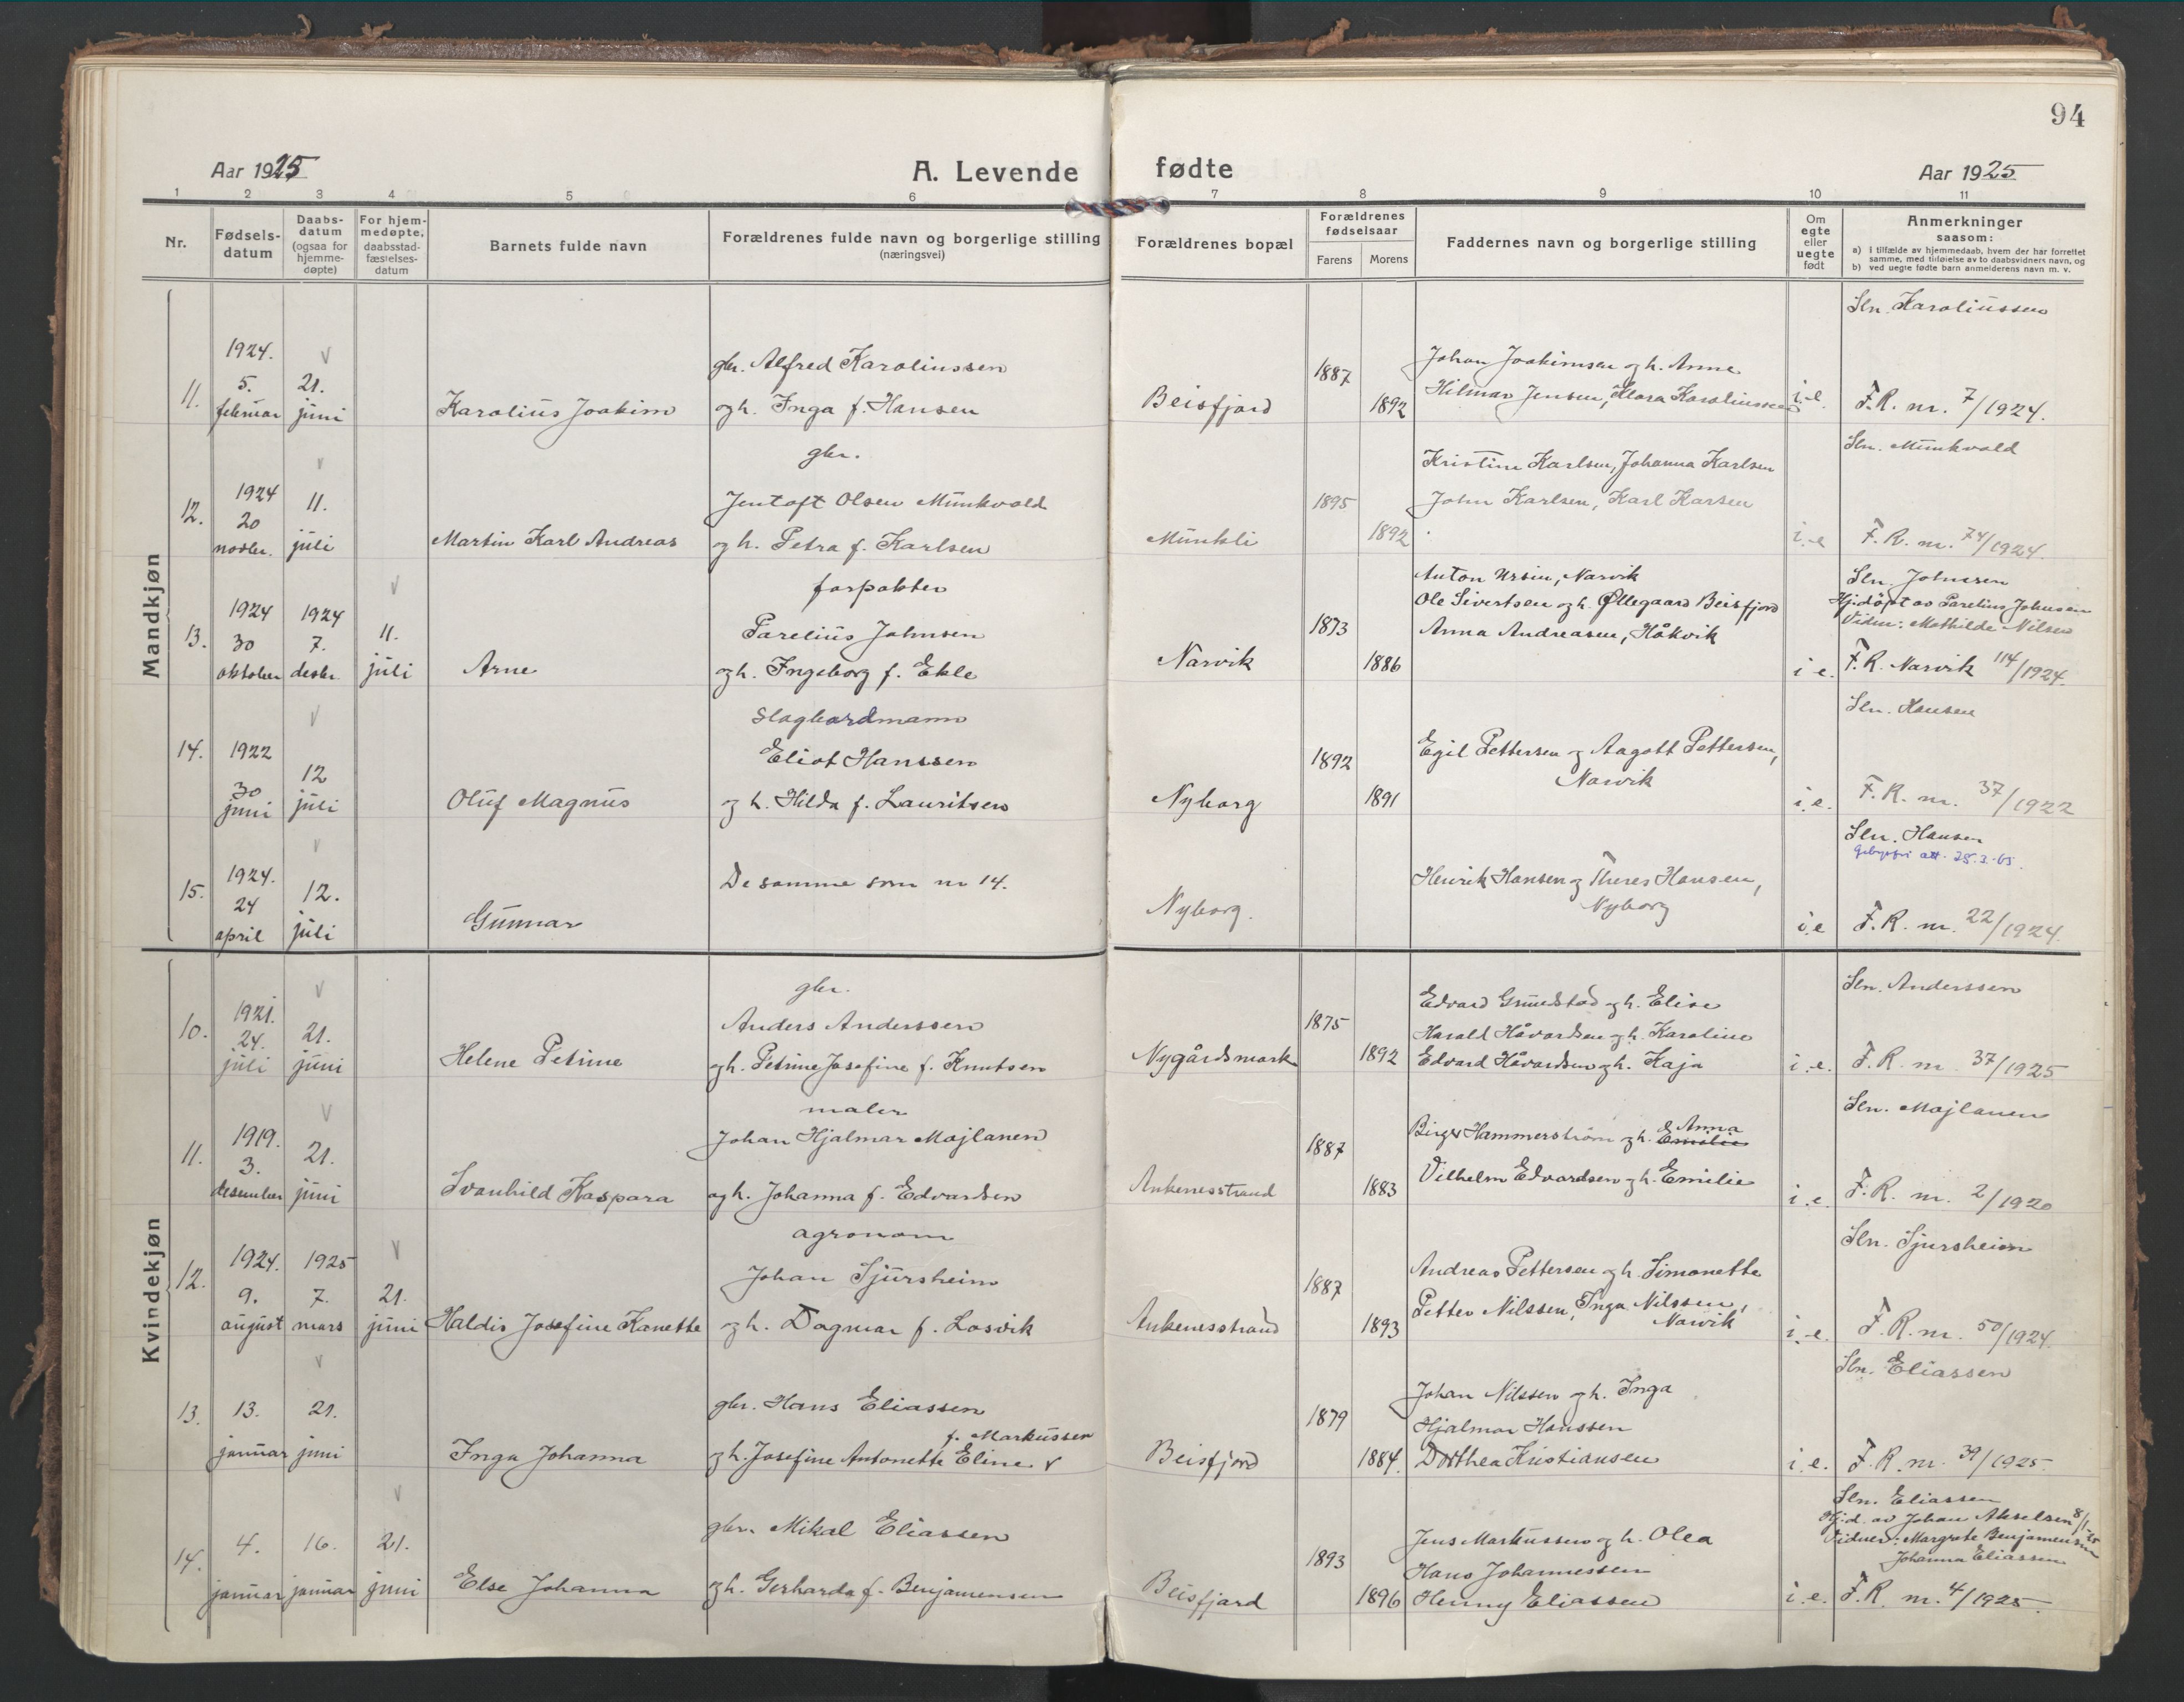 94
Aar 1925
A. Levende fødte
Aar 1925
1 2 3 4 5 6 7 8 9 10 11
Nr.
Fødsels-
datum
Daabs-
datum
(ogsaa for
hjemme-
døpte)
For hjem-
medøpte,
daabsstad-
fæstelses-
datum
Barnets fulde navn
Forældrenes fulde navn og borgerlige stilling
(næringsvei)
Forældrenes bopæl
Forældrenes
fødselsaar
Farens Morens
Faddernes navn og borgerlige stilling
Om
egte
eller
uegte
født
Anmerkninger
saasom:
a) i tilfælde av hjemmedaab, hvem der har forrettet
samme, med tilføielse av to daabsvidners navn, og
b) ved uegte fødte barn anmelderens navn m. v.
Mandkjøn
11.
1924.
5.
februar
21.
juni
Karolius Joakim
gbr. Alfred Karoliussen
og h. Inga f. Hansen
Beisfjord
1887
1892
Johan Joakimsen og h. Anne
Hilmar Jensen, Klara Karoliussen
i.e.
Sln. Karoliussen
F.R. nr. 7/1924.
12.
1924
20
novbr.
11.
juli
Martin Karl Andreas
gbr.
Jentoft Olsen Munkvold
og h. Petra f. Karlsen
Munkli
1895
1892
Kristine Karlsen, Johanna Karlsen
John Karlsen, Karl Karsen
i.e
Sln. Munkvold
F.R. nr. 74/1924.
13.
1924
30
oktober
1924
7.
desbr.
11.
juli
Arne
forpakter
Parelius Johnsen
og h. Ingeborg f. Ekle
Narvik
1873
1886
Anton Ursin, Narvik
Ole Sivertsen og h. Øllegaard Beisfjord
Anna Andreasen, Håkvik
i e.
Sln. Johnsen
Hjdøpt av Parelius Johnsen
Vidne: Mathilde Nilsen
F.R. Narvik 114/1924.
14.
1922
30
juni
12
juli
Oluf Magnus
Slagbordmann
Eliot Hanssen
og h. Hilda f. Lauritsen
Nyborg
1892
1891
Egil Pettersen og Aagott Pettersen,
Narvik
i.e.
Sln. Hansen
F.R. nr. 37/1922
15.
1924.
24
april
12.
juli
Gunnar
De samme som nr 14.
Nyborg.
Henrik Hansen og Theres Hansen,
Nyborg
i.e
Sln. Hansen
att. 25.3.65.
F.R. nr. 22/1924.
Kvindekjøn
10.
1921.
24.
juli
21.
juni
Helene Petrine
gbr.
Anders Anderssen
og h. Petrine Josefine f. Knutsen
Nygårdsmark
1875
1892
Edvard Grundstad og h. Elise
Harald Håvardsen og h. Karoline
Edvard Håvardsen og h. Kaja
i.e.
Sln. Anderssen
F.R. nr 37/1925
11.
1919.
3.
desember
21.
juni
Svanhild Kaspara
maler
Johan Hjalmar Majlanen
og h. Johanna f. Edvardsen
Ankenesstrand
1887
1883
Birger Hammerstrøm og h. Emilie Anna
Vilhelm Edvardsen og h. Emilie
i.e.
Sln. Majlanen
F.R. nr. 2/1920
12.
1924.
9.
august
1925
7.
mars
21.
juni
Haldis Josefine Kanette
agronom
Johan Sjursheim
og h. Dagmar f. Losvik
Ankenesstrand
1887
1893
Andreas Pettersen og h. Simonette
Petter Nilssen, Inga Nilssen,
Narvik
i.e.
Sln. Sjursheim
F.R. nr. 50/1924.
13.
13.
januar
21.
juni
Inga Johanna
gbr. Hans Eliassen
f. Markussen
og h. Josefine Antonette Eline v
Beisfjord
1879
1884.
Johan Nilssen og h. Inga
Hjalmar Hanssen
Dorthea Kristiansen
i.e.
Sln. Eliassen
F.R. nr. 39/1925.
14.
4.
januar
16.
januar
21.
juni
Else Johanna
gbr. Mikal Eliassen
og h. Gerharda f. Benjamensen
Beisfjord
1893
1896
Jens Markussen og h. Olea
Hans Johannessen
Henny Eliassen
i.e.
Sln. Eliassen
Hjd. av Johan Akselsen
Vidner: Margrete Benjamensen
Johanna Eliassen
F.R. nr. 4/1925.